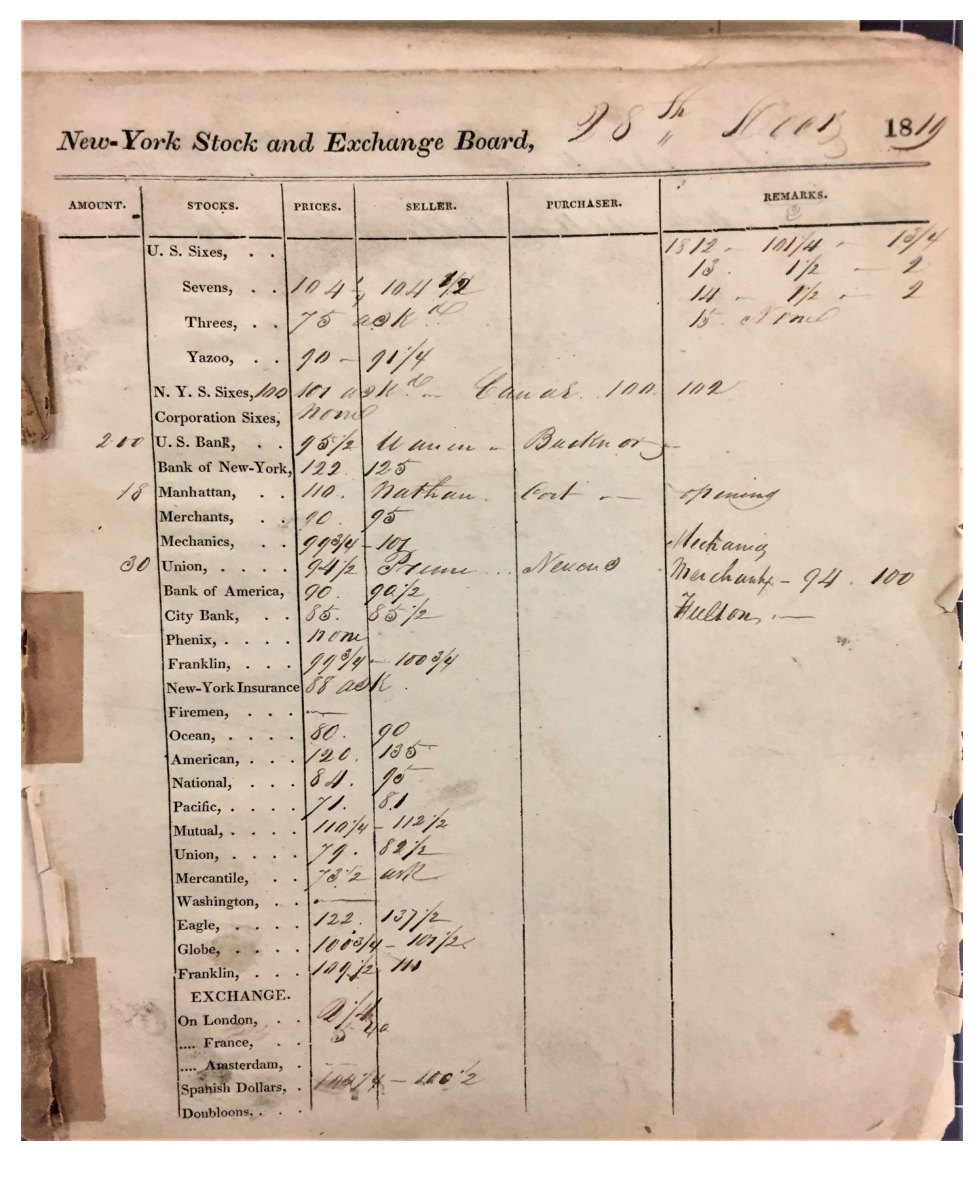 New-York Stock and Exchange Board, 28th 1819
AMOUNT. STOCKS. PRICES. SELLER. PURCHASER. REMARKS.
U. S. Sixes, . . 1812 - 101 1/4 - 1 3/4
13. 1/2 - 2
Sevens, . . 104 104 1/2
14 - 1/2 - 2
Threes, . . 75 askd 15. None
Yazoo, . . 90 - 91 1/4
N. Y. S. Sixes, 100 101 askd - Canal. 100. 102
Corporation Sixes, None
200 U. S. Bank, . . 95 1/2 Warren - Bucknor -
Bank of New-York, 122. 125
18 Manhattan, . . 110. Nathan. Cort - opening
Merchants, . . 90. 95
Mechanics, . . 99 3/4 - 101 Mechanics
30 Union, . . . . 94 1/2 Prime Merchants - 94. 100
Bank of America, 90. 90 1/2
City Bank, . . 85. 85 1/2 Fulton. -
Phenix, . . . . none
Franklin, . . . 99 3/4 - 100 3/4
New-York Insurance 88 ask.
Firemen, . . . -
Ocean, . . . . 80. 90
American, . . . 120. 135
National, . . . 84. 95
Pacific, . . . . 71. 81
Mutual, . . . . 110 1/4 - 112 1/2
Union, . . . . 79. 82 1/2
Mercantile, . . 73 1/2 ask
Washington, . . -
Eagle, . . . . 122. 137 1/2
Globe, . . . . 100 3/4 - 101 1/2
Franklin, . . . 109 1/2 110
EXCHANGE.
On London, . .
.... France, . . 5 40
.... Amsterdam, .
Spanish Dollars, . 100 1/4 - 100 1/2
Doubloons, . . .